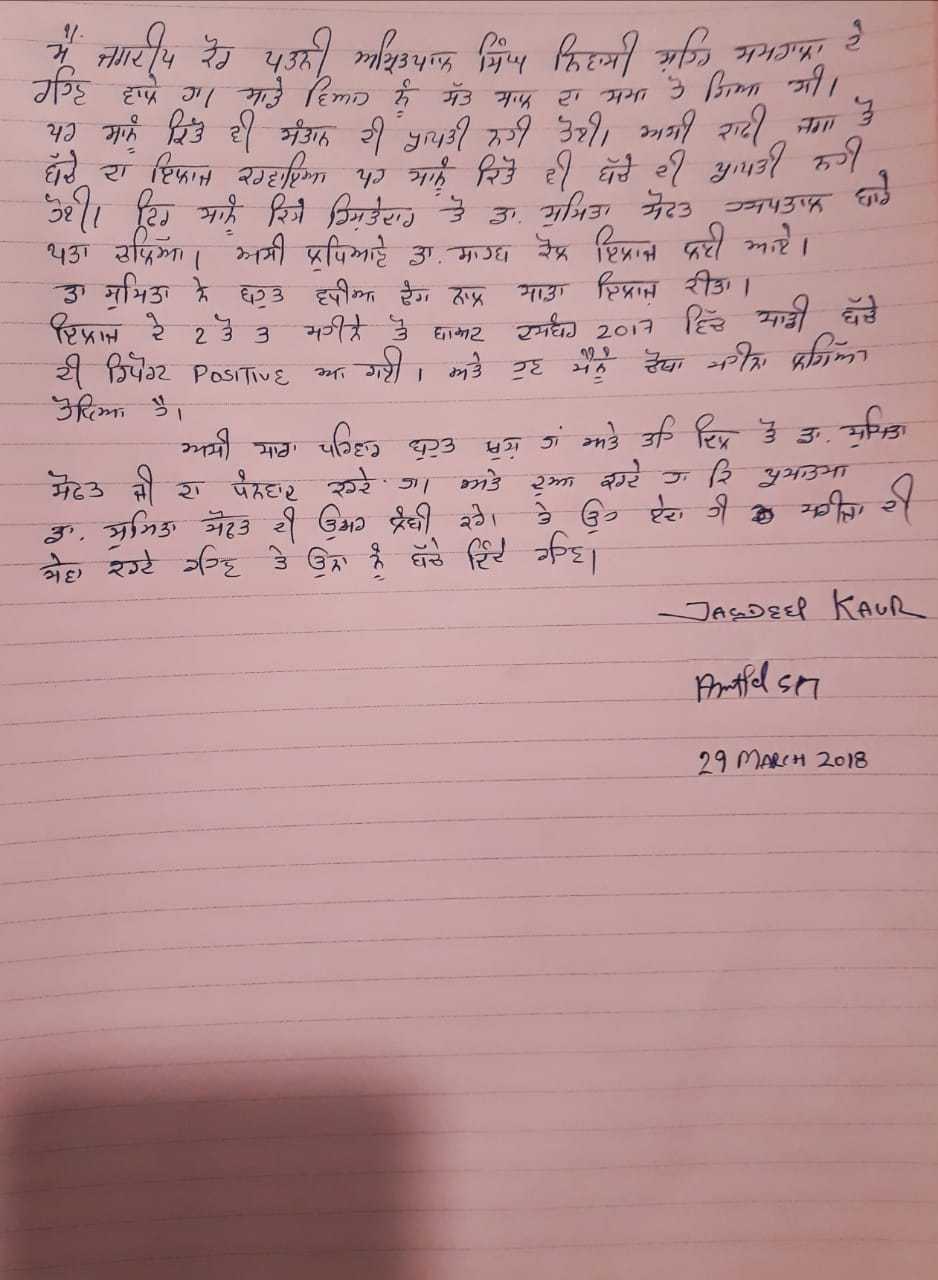 ਮੈਂ ਜਗਦੀਪ ਕੌਰ ਪਤਨੀ ਅਮ੍ਰਿਤਪਾਲ ਸਿੰਘ ਨਿਵਾਸੀ ਸ਼ਹਿਰ ਸਮਰਾਲਾ ਦੇ
ਰਹਿਣ ਵਾਲੇ ਹਾਂ। ਸਾਡੇ ਵਿਆਹ ਨੂੰ ਸੱਤ ਸਾਲ ਦਾ ਸਮਾ ਹੋ ਗਿਆ ਸੀ।
ਪਰ ਸਾਨੂੰ ਕਿਤੇ ਵੀ ਸੰਤਾਨ ਦੀ ਪ੍ਰਾਪਤੀ ਨਹੀ ਹੋਈ। ਅਸੀ ਕਾਫੀ ਜਗਾ ਤੋਂ
ਬੱਚੇ ਦਾ ਇਲਾਜ ਕਰਵਾਇਆ ਪਰ ਸਾਨੂੰ ਕਿਤੇ ਵੀ ਬੱਚੇ ਦੀ ਪ੍ਰਾਪਤੀ ਨਹੀ
ਹੋਈ। ਫਿਰ ਸਾਨੂੰ ਕਿਸੇ ਰਿਸ਼ਤੇਦਾਰ ਤੋਂ ਡਾ. ਸੁਮਿਤਾ ਸੋਫਤ ਹਸਪਤਾਲ ਬਾਰੇ
ਪਤਾ ਚੱਲਿਆ। ਅਸੀ ਲੁਧਿਆਣੇ ਡਾ. ਸਾਹਬ ਕੋਲ ਇਲਾਜ ਲਈ ਆਏ।
ਡਾ ਸੁਮਿਤਾ ਨੇ ਬਹੁਤ ਵਧੀਆ ਢੰਗ ਨਾਲ ਸਾਡਾ ਇਲਾਜ ਕੀਤਾ।
ਇਲਾਜ ਦੇ 2 ਤੋਂ 3 ਮਹੀਨੇ ਤੋਂ ਬਾਅਦ ਦਸੰਬਰ 2017 ਵਿੱਚ ਸਾਡੀ ਬੱਚੇ
ਦੀ ਰਿਪੋਰਟ POSITIVE ਆ ਗਈ। ਅਤੇ ਹੁਣ ਮੈਨੂੰ ਚੋਥਾ ਮਹੀਨਾ ਲੱਗਿਆ
ਹੋਇਆ ਹੈ।
ਅਸੀ ਸਾਰਾ ਪਰਿਵਾਰ ਬਹੁਤ ਖੁਸ਼ ਹਾਂ ਅਤੇ ਤਹਿ ਦਿਲ ਤੋਂ ਡਾ. ਸੁਮਿਤਾ
ਸੋਫਤ ਜੀ ਦਾ ਧੰਨਵਾਦ ਕਰਦੇ ਹਾਂ। ਅਤੇ ਦੁਆ ਕਰਦੇ ਹਾਂ ਕਿ ਪ੍ਰਮਾਤਮਾ
ਡਾ. ਸੁਮਿਤਾ ਸੋਫਤ ਦੀ ਉਮਰ ਲੰਬੀ ਕਰੇ। ਤੇ ਉਹ ਏਦਾ ਹੀ ਮਰੀਜਾ ਦੀ
ਸੇਵਾ ਕਰਦੇ ਰਹਿਣ ਤੇ ਉਨਾ ਨੂੰ ਬੱਚੇ ਦਿੰਦੇ ਰਹਿਣ।
JAGDEEP KAUR
29 MARCH 2018